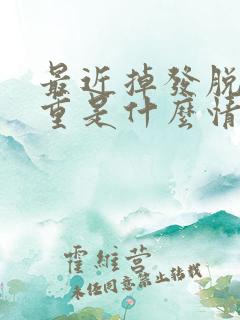 最近掉發脫
重是什麼情
霍維营
未任同意禁止转载